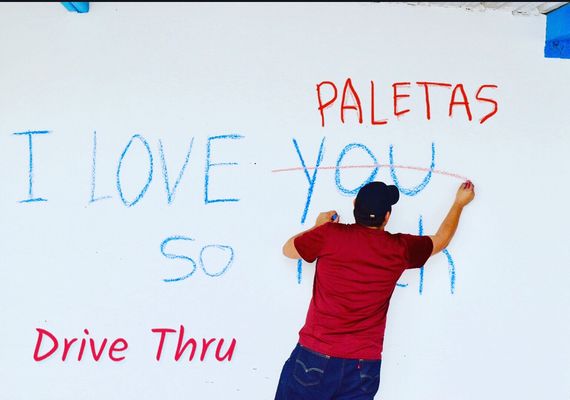 PALETAS
I LOVE YOU
SO
Drive Thru